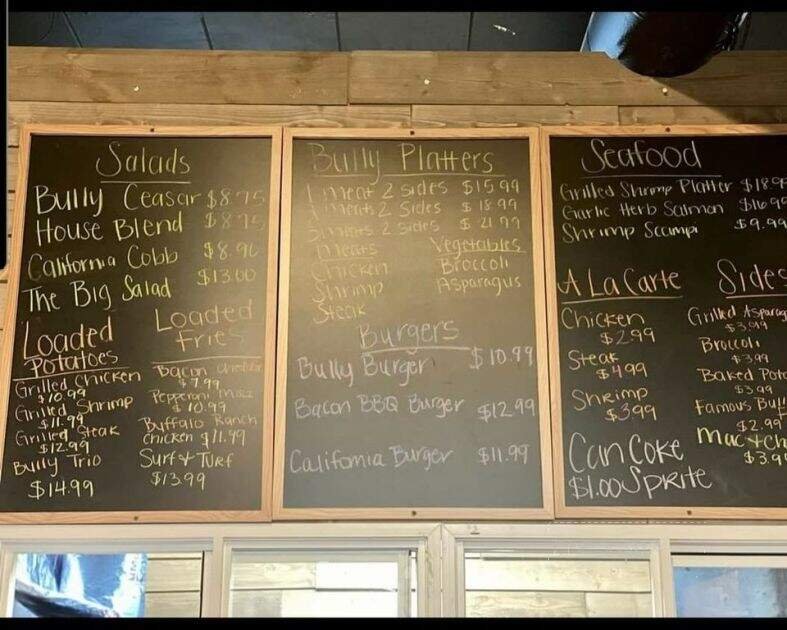 Salads
Bully Ceasar $8.75
House Blend $8.75
California Cobb $8.90
The Big Salad $13.00
Loaded
Potatoes
Grilled Chicken
$10.99
Grilled Shrimp
$11.99
Grilled Steak
$12.99
Bully Trio
$14.99
Loaded
Fries
Bacon Cheddar
$7.99
Pepperoni Mozz
$10.99
Buffalo Ranch
Chicken $11.99
Surf & Turf
$13.99
Bully Platters
1 meat 2 sides $15.99
2 meats 2 sides $18.99
3 meats 2 sides $21.99
Meats
Chicken
Shrimp
Steak
Vegetables
Broccoli
Asparagus
Burgers
Bully Burger $10.99
Bacon BBQ Burger $12.99
California Burger $11.99
Seafood
Grilled Shrimp Platter $18.9
Garlic Herb Salmon $16.99
Shrimp Scampi $9.99
A La Carte
Chicken
$2.99
Steak
$4.99
Shrimp
$3.99
Can Coke
$1.00 Sprite
Sides
Grilled Asparag
$3.99
Broccoli
$3.99
Baked Pota
$3.99
Famous Bull
$2.99
Mac & Ch
$3.9